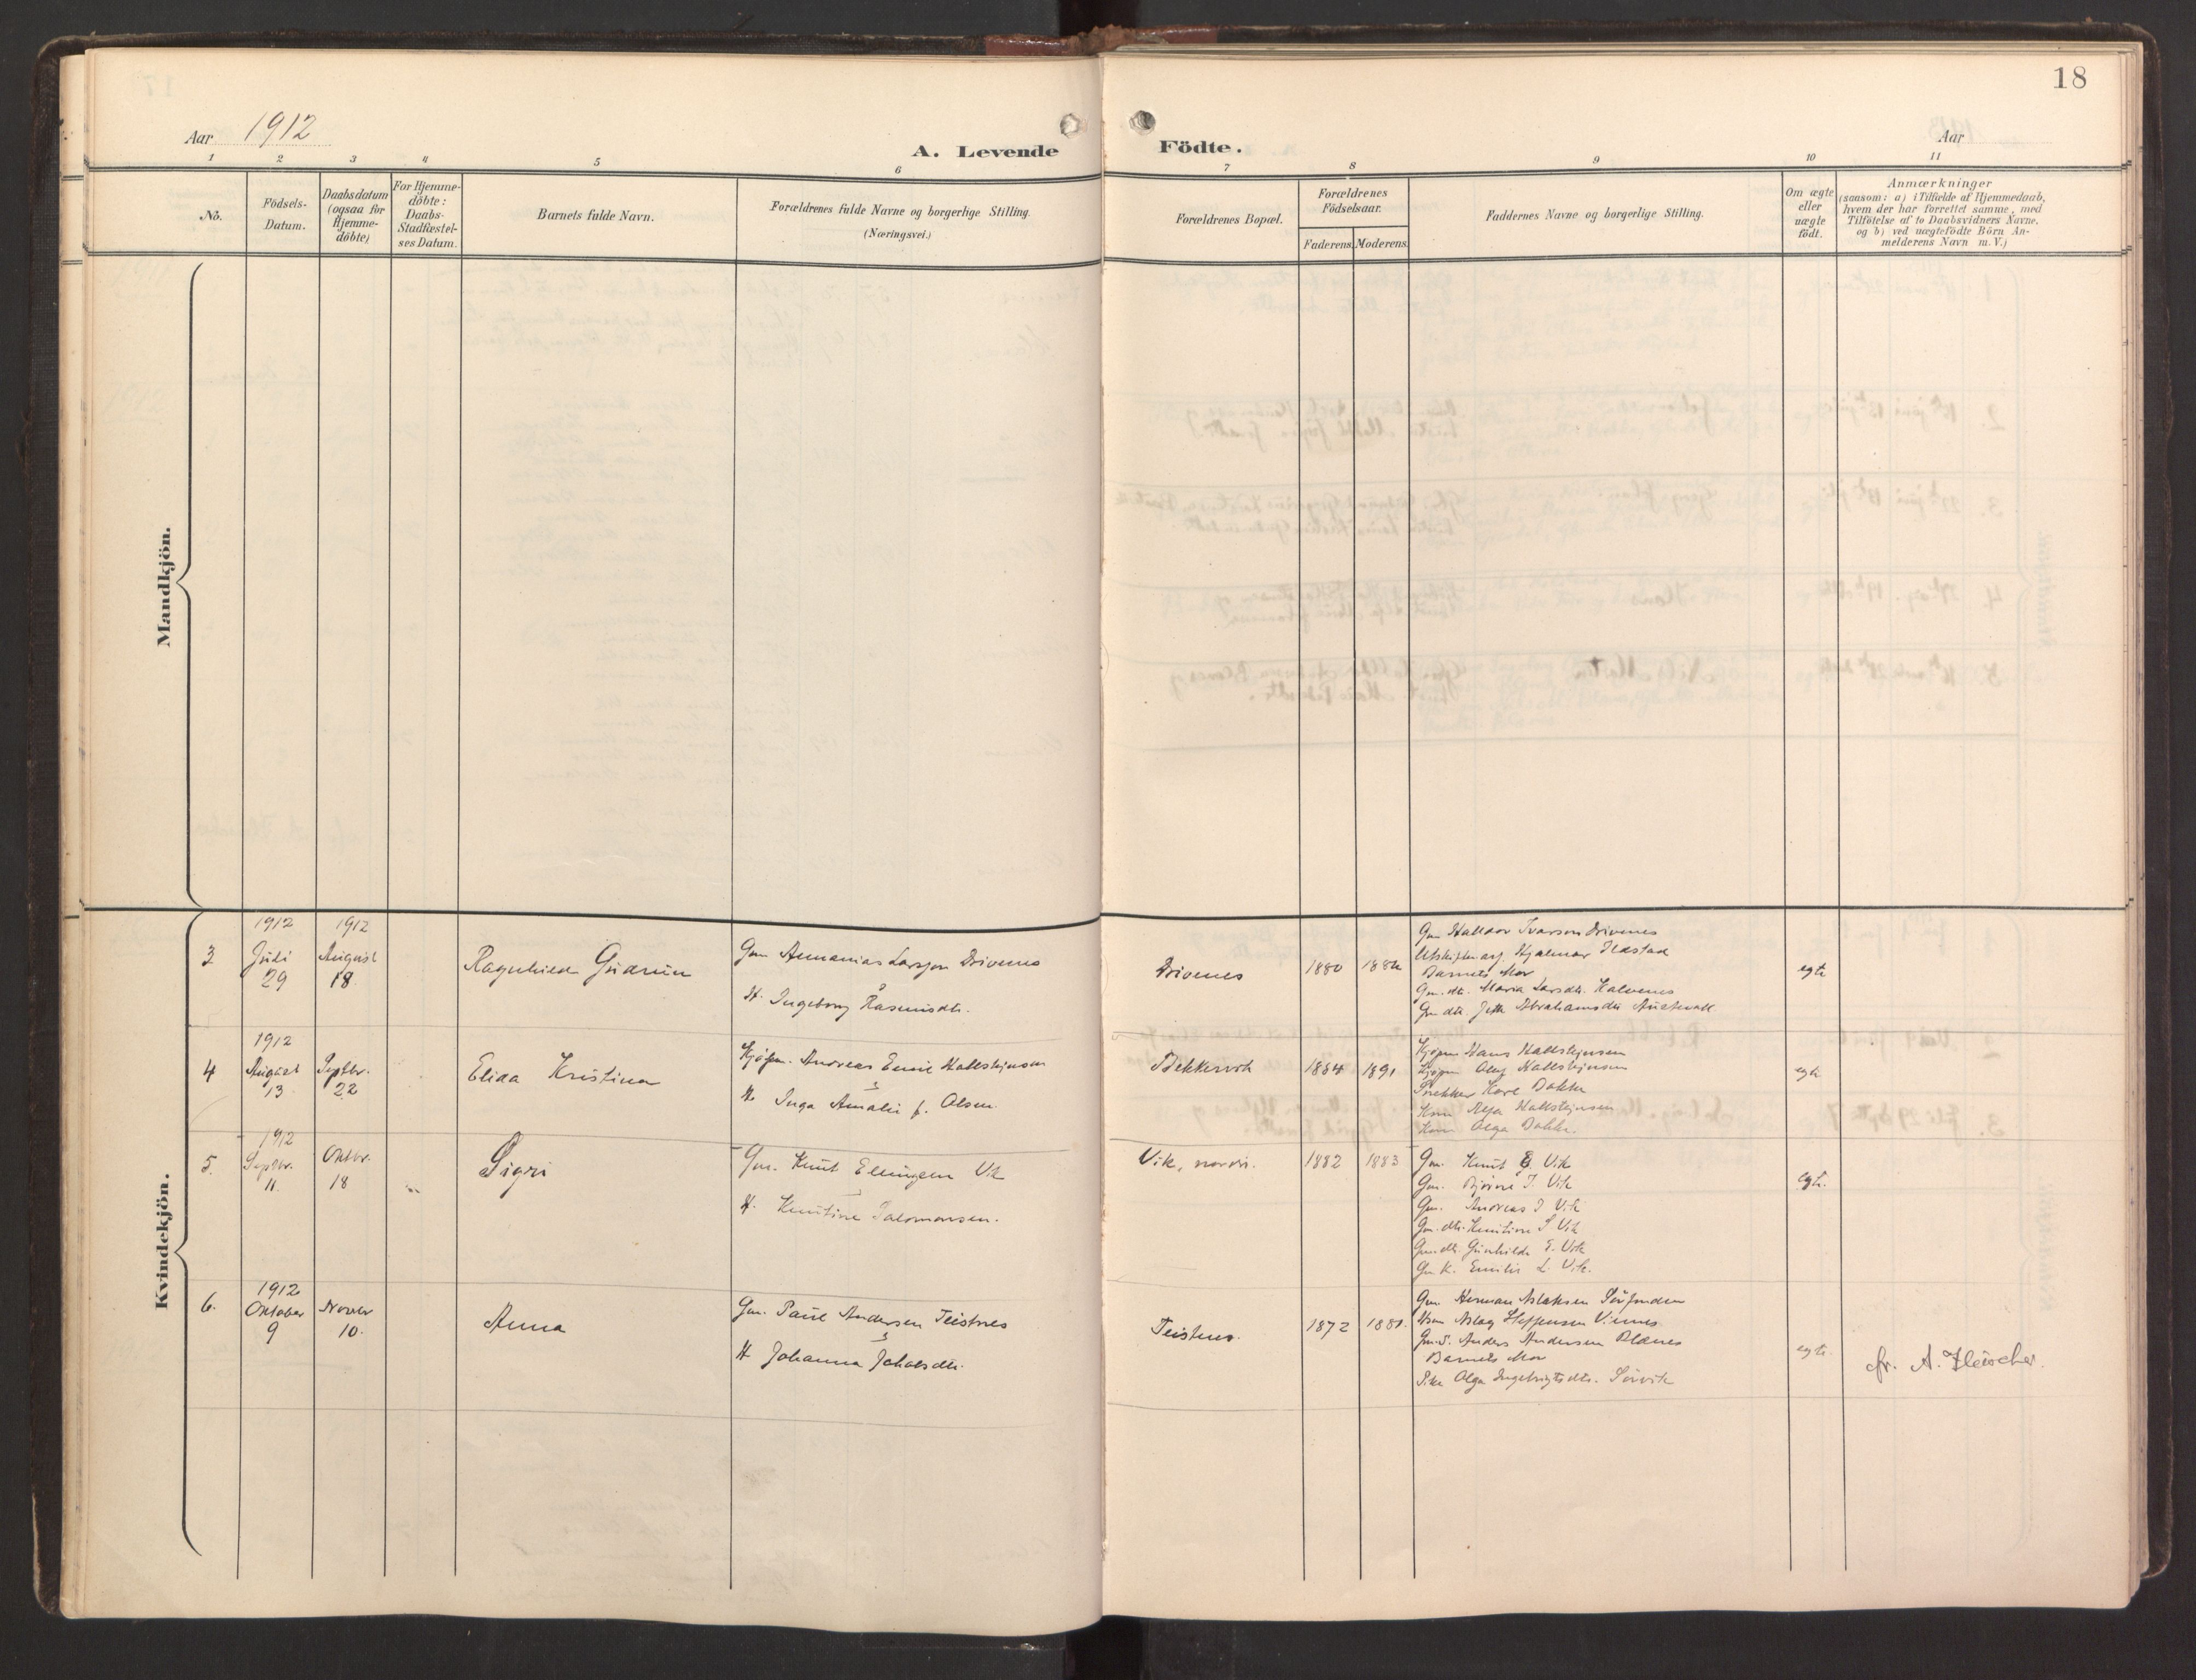 18
Aar 1912
A. Levende Födte.
Aar
1 2 3 4 5 6 7 8 9 10 11
No.
Födsels-
Datum.
Daabsdatum
(ogsaa for
Hjemme-
döbte)
For Hjemme-
döbte:
Daabs-
Stadfæstel-
ses Datum.
Barnets fulde Navn.
Forældrenes fulde Navne og borgerlige Stilling.
(Næringsvei.)
Forældrenes Bopæl.
Forældrenes
Födselsaar.
Faderens. Moderens.
Faddernes Navne og borgerlige Stilling.
Om ægte
eller
uægte
födt.
Anmærkninger
(saasom: a) i Tilfælde af Hjemmedaab,
hvem der har forrettet samme, med
Tilföielse af to Daabsvidners Navne.
og b) ved uægtefödte Börn An-
melderens Navn m. V.)
Mandkjön.
Kvindekjön.
3
1912
Juli
29
1912
August
18
Ragnhild Gudrun
Gm Annanias Larsson Drivenes
H. Ingeborg Rasmusdtr.
Drivenes
1880
Gm Halldor Ivarson Drivenes
Hjalmar
Barnets Mor
Gm. dtr. Maria Larsdtr. Kalvenes
Gm dtr. Abrahamsdtr Austevoll
egte
4
1912
August
13
Septbr.
22
Elida Kristina
Kjøpm. Andreas Emil Hallstejnsen
H. Inga Amalie f. Olsen
Bekkervik
1884 1891
Kjøpm Hans Hallstejnsen
Kjøpm Olaf Hallstejnsen
Snekker Karl Dokke
Kone Hallstejnsen
Kone Olga Dokke.
egte
5.
1912
Septbr.
11.
Oktbr.
18
Sigri
Gm. Knut Ellingsen Vik
H. Knutine Salomonsen.
Vik, nordre.
1882 1883
Gm. Knut E. Vik
Gm. Vik
Gm. Andreas J Vik
Gm. dtr. Knutine S Vik
Gm. dtr. Gunhilde E. Vik
Gm K. Emilie L. Vik.
egte.
6.
1912
Oktober
9
Novbr
10.
Anna
Gm. Paul Andersen Teistnes
H Johanna Jakobsdtr.
Teistnes.
1872 1881.
Gm Herman Aslaksen
Aslag Steffensen Vinnes
Gm. S. Anders Andersen Blænes
Barnets Mor
Pike Olga Ingebrigtsdtr. Sørvik
egte.
fr. A. Fleischer.